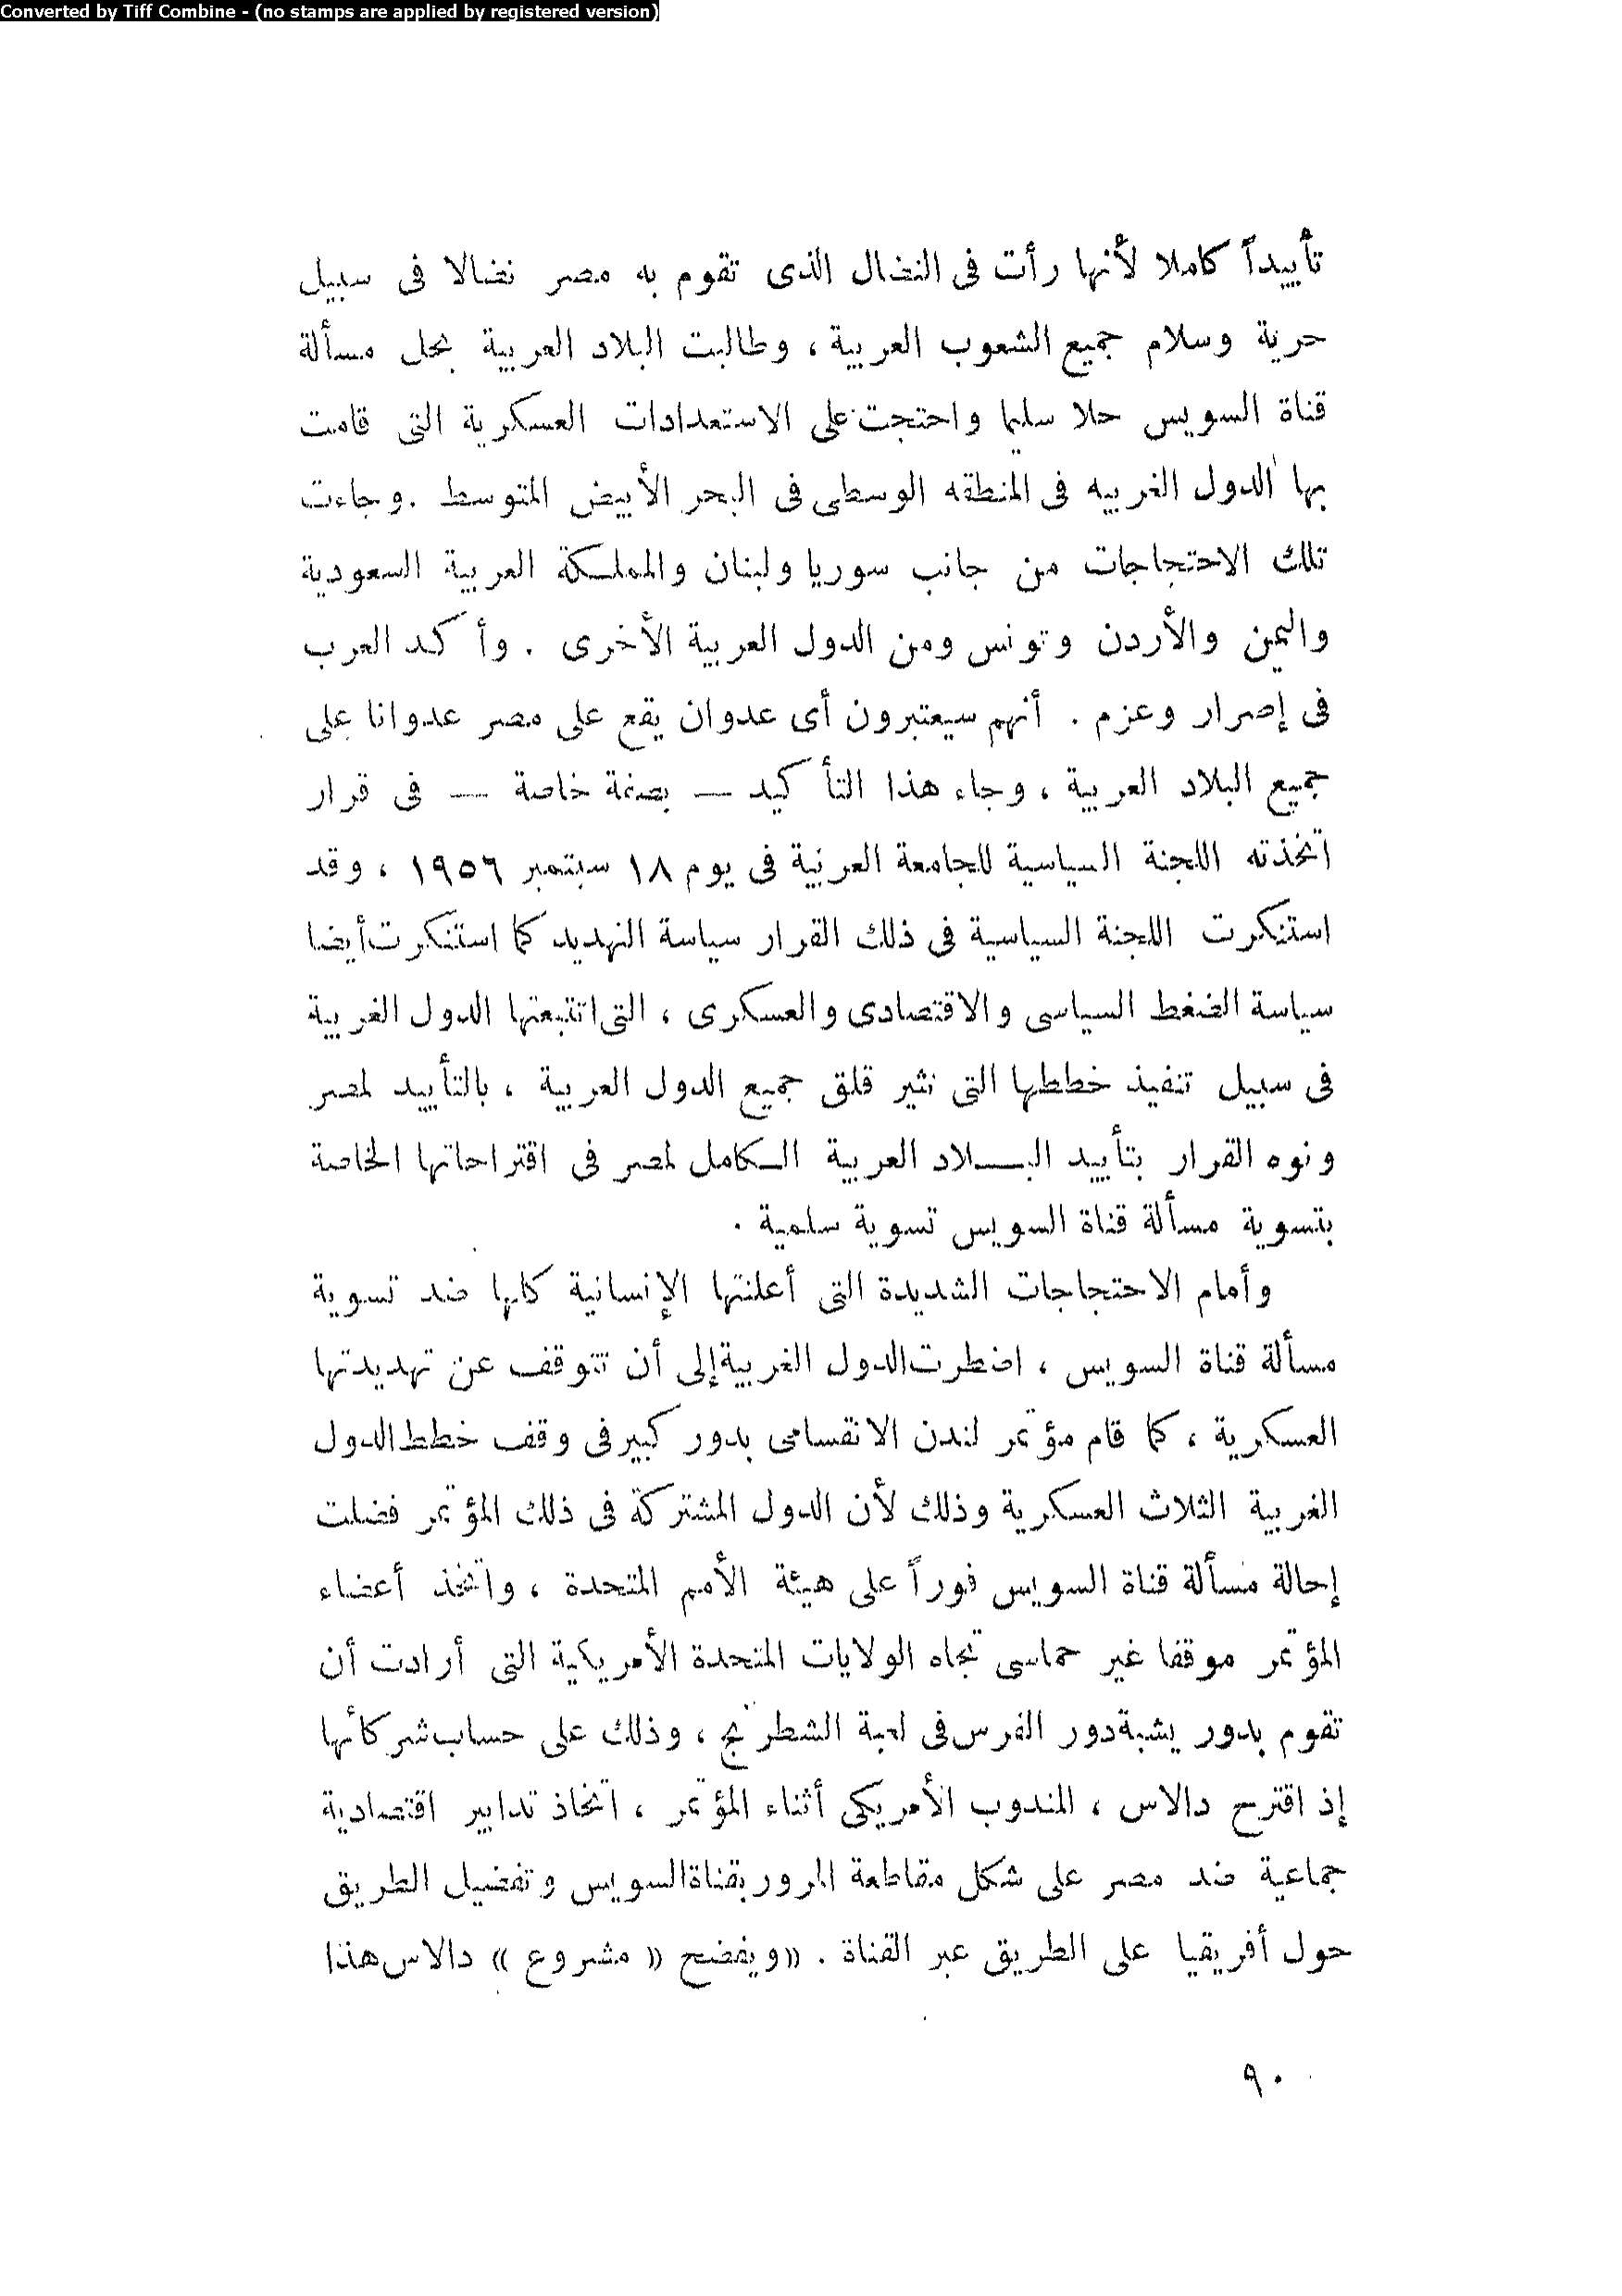 Converted by Tiff Combine - (no stamps are applied by registered version)
تأييداً كاملا لأنها رأت فى النضال الذى تقوم به مصر نضالا فى سبيل
حرية وسلام جميع الشعوب العربية ، وطالبت البلاد العربية بحل مسألة
قناة السويس حلا سليما واحتجت على الاستعدادات العسكرية التى قامت
بها الدول الغربيه فى المنطقه الوسطى فى البحر الأبيض المتوسط . وجاءت
تلك الاحتجاجات من جانب سوريا ولبنان والمملكة العربية السعودية
واليمن والأردن وتونس ومن الدول العربية الأخرى . وأكد العرب
فى إصرار وعزم . أنهم سيعتبرون أى عدوان يقع على مصر عدوانا على
جميع البلاد العربية ، وجاء هذا التأكيد — بصفة خاصة — فى قرار
اتخذته اللجنة السياسية للجامعة العربية فى يوم ١٨ سبتمبر ١٩٥٦ ، وقد
استنكرت اللجنة السياسية فى ذلك القرار سياسة التهديد كما استنكرت أيضا
سياسة الضغط السياسى والاقتصادى والعسكرى ، التى اتتبعتها الدول الغربية
فى سبيل تنفيذ خططها التى تثير قلق جميع الدول العربية ، بالتأييد لمصر
ونوه القرار بتأييد البلاد العربية الكامل لمصر فى اقتراحاتها الخاصة
بتسوية مسألة قناة السويس تسوية سلمية .
وأمام الاحتجاجات الشديدة التى أعلنتها الإنسانية كلها ضد تسوية
مسألة قناة السويس ، اضطرت الدول الغربية إلى أن تتوقف عن تهديدتها
العسكرية ، كما قام مؤتمر لندن الانقسامى بدور كبير فى وقف خطط الدول
الغربية الثلاث العسكرية وذلك لأن الدول المشتركة فى ذلك المؤتمر فضلت
إحالة مسألة قناة السويس فوراً على هيئة الأمم المتحدة ، واتخذ أعضاء
المؤتمر موقفا غير حماسى تجاه الولايات المتحدة الأمريكية التى أرادت أن
تقوم بدور يشبة دور الفرس فى لعبة الشطرنج ، وذلك على حساب شركائها
إذ اقترح دالاس ، المندوب الأمريكى أثناء المؤتمر ، اتخاذ تدابير اقتصادية
جماعية ضد مصر على شكل مقاطعة المرور بقناة السويس وتفضيل الطريق
حول أفريقيا على الطريق عبر القناة . «ويفضح « مشروع » دالاس هذا
٩٠